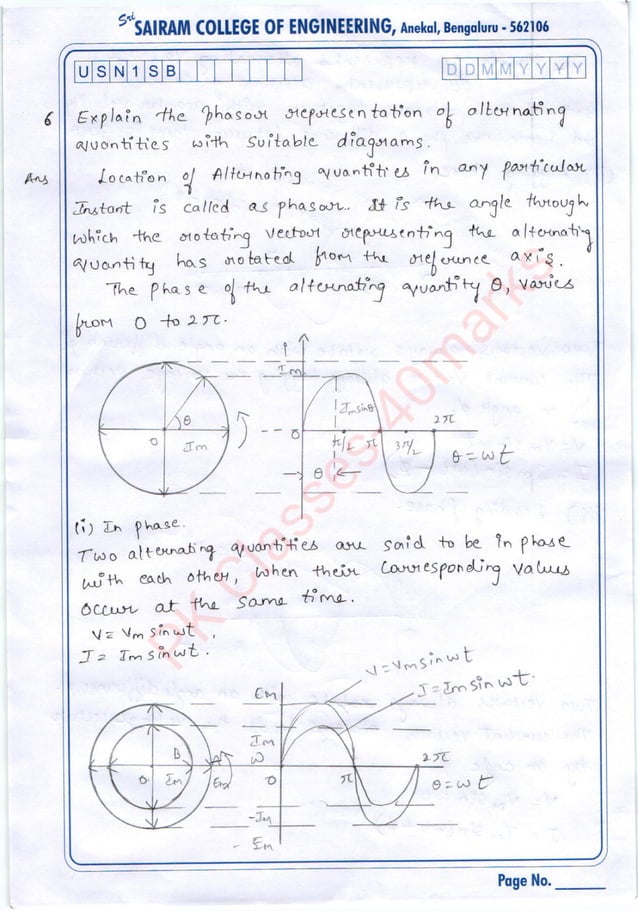 Sri SAIRAM COLLEGE OF ENGINEERING, Anekal, Bengaluru - 562106
U S N 1 S B
D D M M Y Y Y Y
6 Explain the phasor representation of alternating
quantities with suitable diagrams.
Ans Location of Alternating quantities in any particular
Instant is called as phasor. It is the angle through
which the rotating vector representing the alternating
quantity has rotated from the reference axis.
The phase of the alternating quantity θ, varies
from 0 to 2π.
i
Im
Im sinθ
2π
θ
0
Im
0
π/2 π 3π/2
θ = wt
θ
(i) In phase.
Two alternating quantities are said to be in phase
with each other, when their corresponding values
occur at the same time.
V = Vm sin wt,
I = Im sin wt.
V = Vm sin wt
I = Im sin wt.
Em
Im
W
B A
0 Im Em
0 π 2π
θ = wt
-Im
- Em
PK Classes-40marks
Page No.